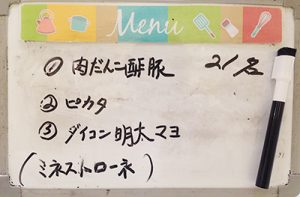 Menu
① 肉だんご酢豚 21名
② ピカタ
③ ダイコン明太マヨ
(ミネストローネ)